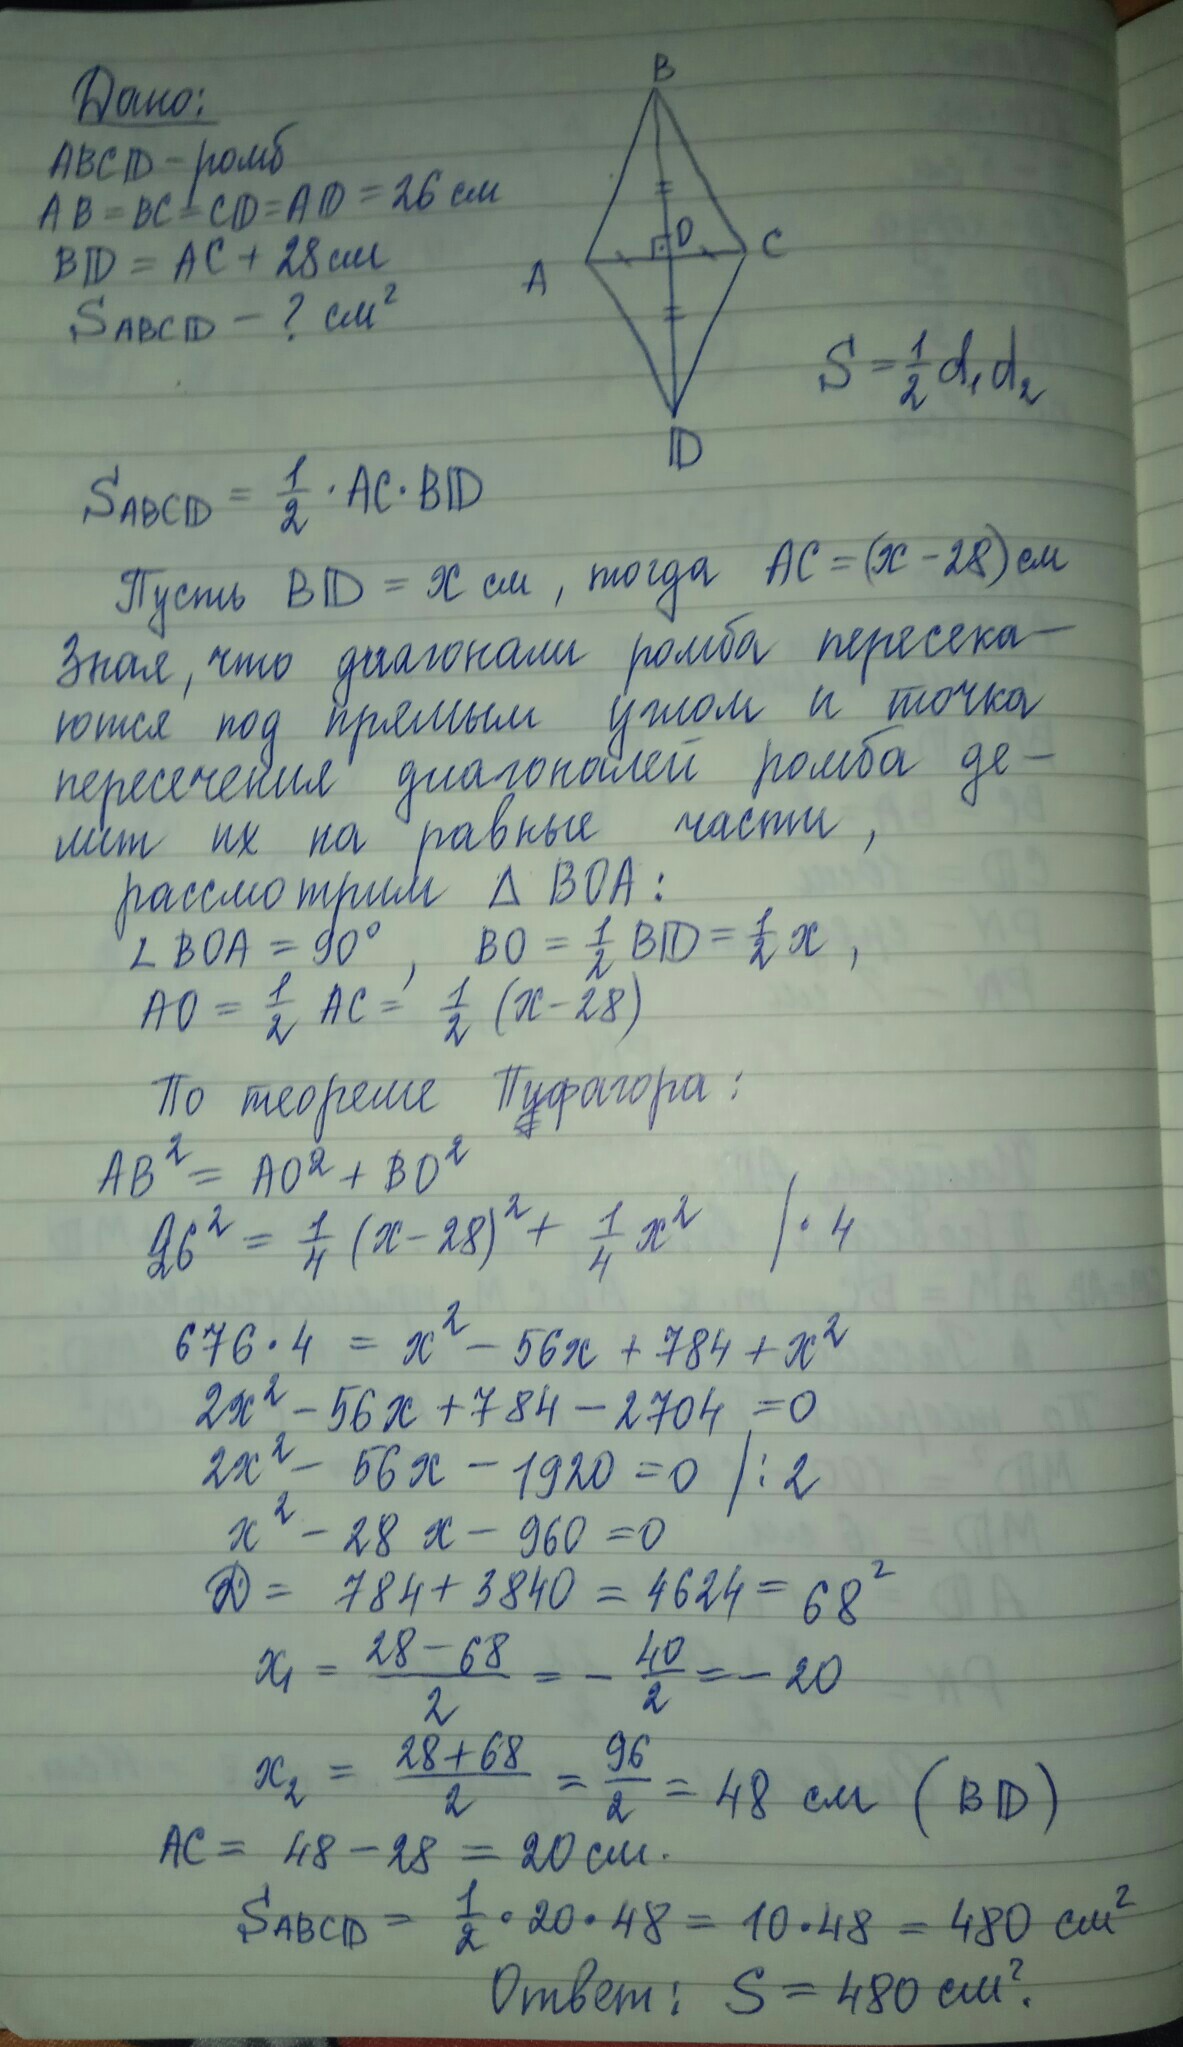 Дано:
ABCD - ромб
AB = BC = CD = AD = 26 см
BD = AC + 28 см
S_ABCD - ? см²
B
O
A
C
D
S = 1/2 d₁ d₂
S_ABCD = 1/2 · AC · BD
Пусть BD = x см, тогда AC = (x - 28) см
Зная, что диагонали ромба пересека-
ются под прямым углом и точка
пересечения диагоналей ромба де-
лит их на равные части,
рассмотрим Δ BOA:
∠ BOA = 90°, BO = 1/2 BD = 1/2 x,
AO = 1/2 AC = 1/2 (x - 28)
По теореме Пифагора:
AB² = AO² + BO²
26² = 1/4 (x - 28)² + 1/4 x² | · 4
676 · 4 = x² - 56x + 784 + x²
2x² - 56x + 784 - 2704 = 0
2x² - 56x - 1920 = 0 | : 2
x² - 28x - 960 = 0
D = 784 + 3840 = 4624 = 68²
x₁ = (28 - 68)/2 = - 40/2 = - 20
x₂ = (28 + 68)/2 = 96/2 = 48 см (BD)
AC = 48 - 28 = 20 см.
S_ABCD = 1/2 · 20 · 48 = 10 · 48 = 480 см²
Ответ: S = 480 см².